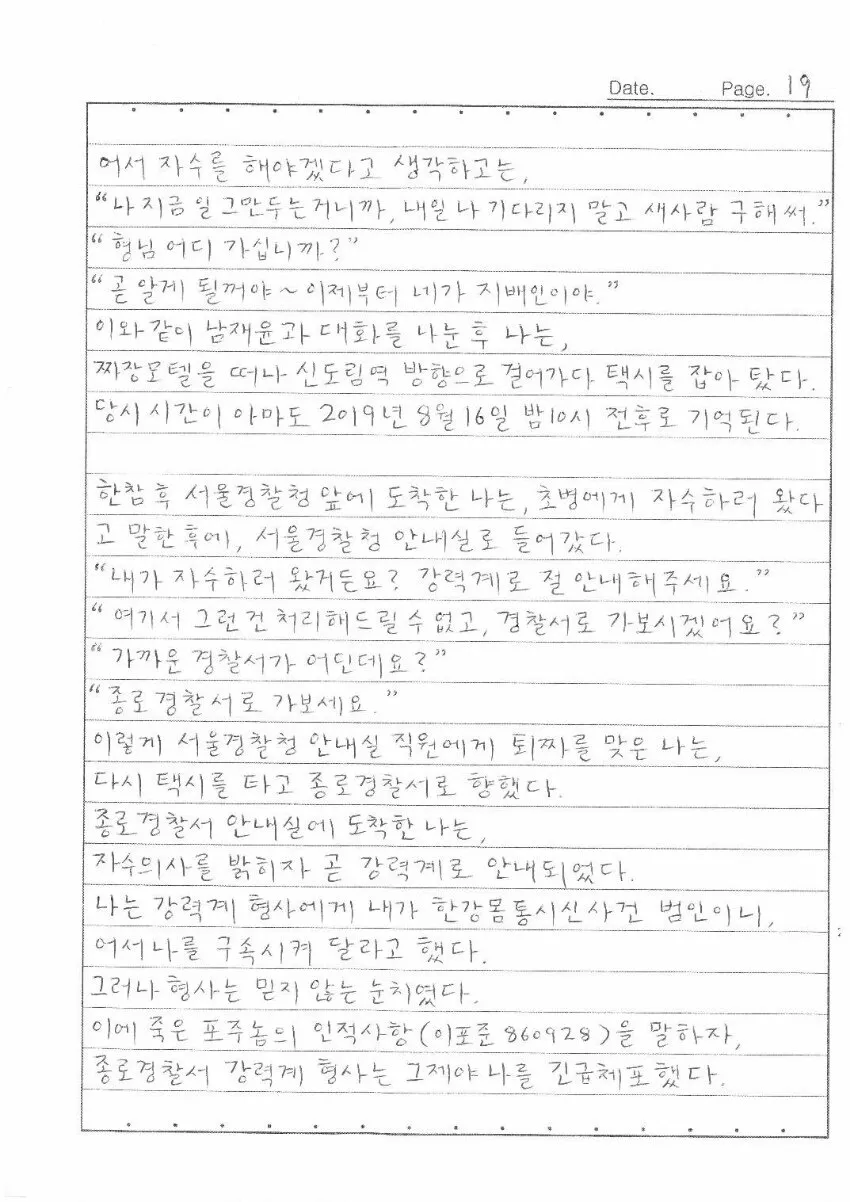 Date. Page. 19
어서 자수를 해야겠다고 생각하고는,
"나 지금 일 그만두는거니까, 내일 나 기다리지 말고 새사람 구해써."
"형님 어디 가십니까?"
"곧 알게 될꺼야~ 이제부터 네가 지배인이야."
이와같이 남재윤과 대화를 나눈 후 나는,
짜장모텔을 떠나 신도림역 방향으로 걸어가다 택시를 잡아 탔다.
당시 시간이 아마도 2019년 8월 16일 밤10시 전후로 기억된다.
한참 후 서울경찰청 앞에 도착한 나는, 초병에게 자수하러 왔다
고 말한 후에, 서울경찰청 안내실로 들어갔다.
"내가 자수하러 왔거든요? 강력계로 절 안내해주세요."
"여기서 그런건 처리해드릴 수 없고, 경찰서로 가보시겠어요?"
"가까운 경찰서가 어딘데요?"
"종로경찰서로 가보세요."
이렇게 서울경찰청 안내실 직원에게 퇴짜를 맞은 나는,
다시 택시를 타고 종로경찰서로 향했다.
종로경찰서 안내실에 도착한 나는,
자수의사를 밝히자 곧 강력계로 안내되었다.
나는 강력계 형사에게 내가 한강몸통시신사건 범인이니,
어서 나를 구속시켜 달라고 했다.
그러나 형사는 믿지 않는 눈치였다.
이에 죽은 포주놈의 인적사항(이포준 860928)을 말하자,
종로경찰서 강력계 형사는 그제야 나를 긴급체포했다.